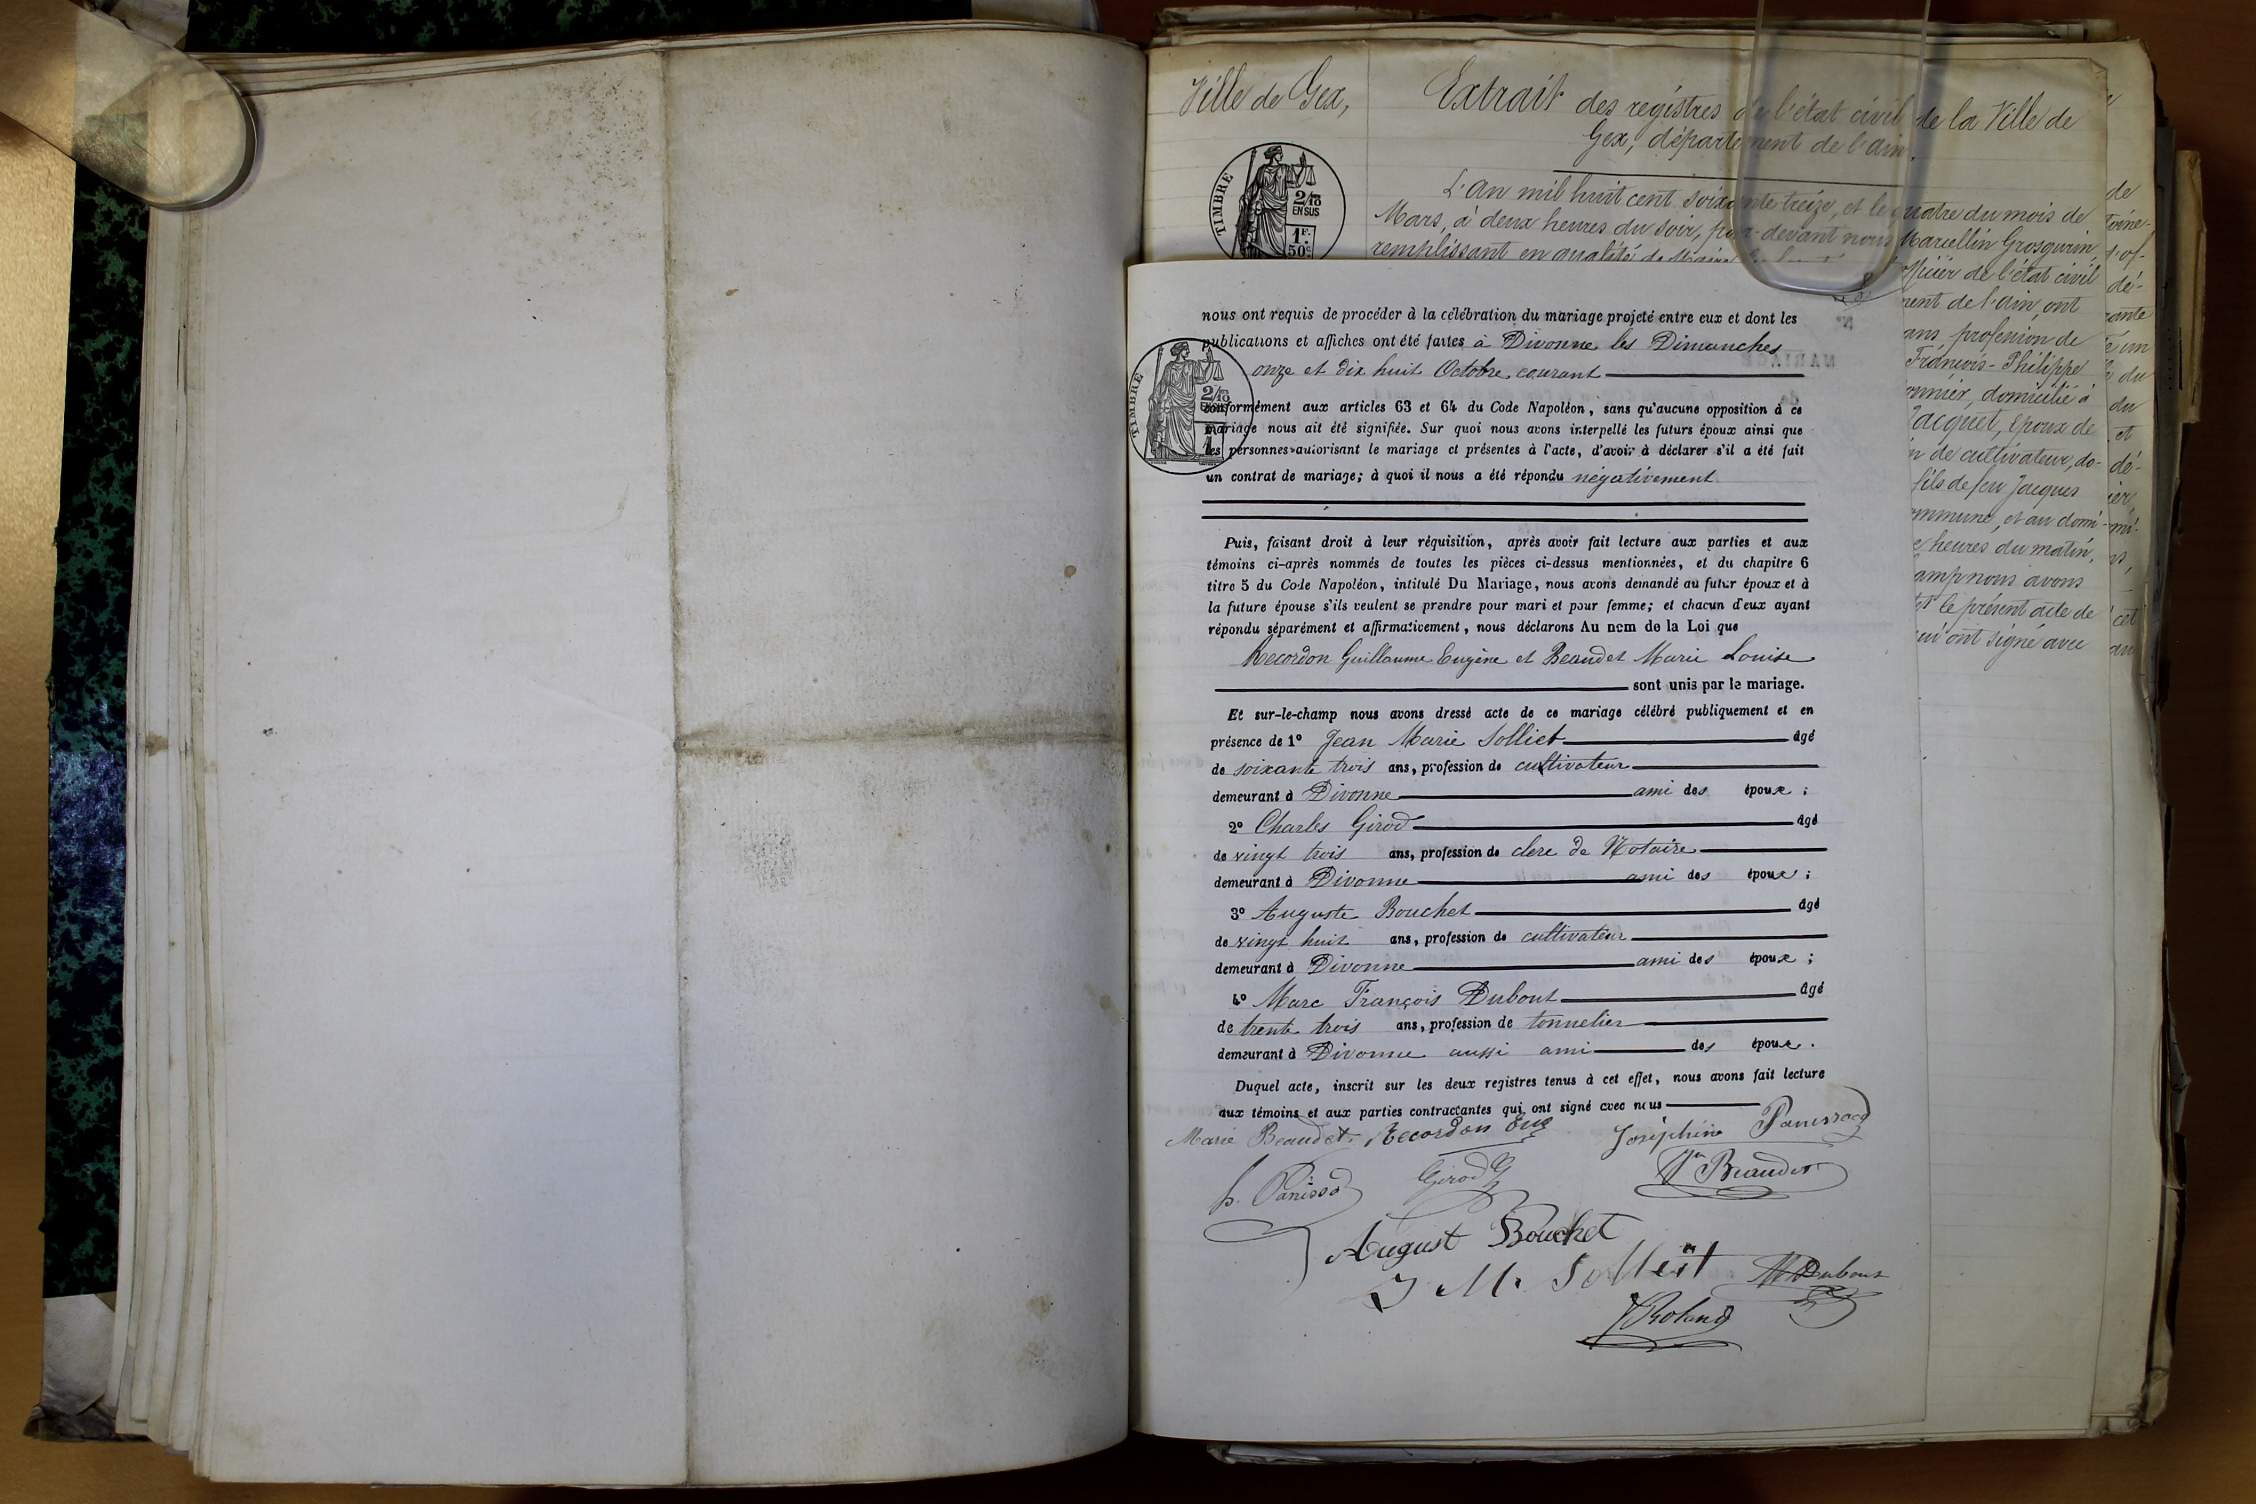 Ville de Gex,
Extrait des registres de l'état civil de la Ville de
Gex, département de l'ain.
TIMBRE
2/10
EN SUS
1F.
50c
L'An mil huit cent soixante treize, et le quatre du mois de
Mars, à deux heures du soir, par-devant nous Marcellin Grosgurin,
remplissant en qualité de Maire
officier de l'état civil
ment de l'ain, ont
ans, profession de
François-Philippe
domicilié à
Jacquet, époux de
de cultivateur, do-
fils de feu Jacques
commune, et au domi-
heures du matin,
champ nous avons
le présent acte de
qui ont signé avec
nous ont requis de procéder à la célébration du mariage projeté entre eux et dont les
publications et affiches ont été faites à Divonne les Dimanches
onze et dix huit Octobre courant
TIMBRE
2/10
EN SUS
1F
conformément aux articles 63 et 64 du Code Napoléon, sans qu'aucune opposition à ce
mariage nous ait été signifiée. Sur quoi nous avons interpellé les futurs époux ainsi que
les personnes autorisant le mariage et présentes à l'acte, d'avoir à déclarer s'il a été fait
un contrat de mariage; à quoi il nous a été répondu négativement
Puis, faisant droit à leur réquisition, après avoir fait lecture aux parties et aux
témoins ci-après nommés de toutes les pièces ci-dessus mentionnées, et du chapitre 6
titre 5 du Code Napoléon, intitulé Du Mariage, nous avons demandé au futur époux et à
la future épouse s'ils veulent se prendre pour mari et pour femme; et chacun d'eux ayant
répondu séparément et affirmativement, nous déclarons Au nom de la Loi que
Recordon Guillaume Eugène et Beaudet Marie Louise
sont unis par le mariage.
Et sur-le-champ nous avons dressé acte de ce mariage célébré publiquement et en
présence de 1° Jean Marie Solliet âgé
de soixante trois ans, profession de cultivateur
demeurant à Divonne ami des époux;
2° Charles Girod âgé
de vingt trois ans, profession de clerc de Notaire
demeurant à Divonne ami des époux;
3° Auguste Bouchet âgé
de vingt huit ans, profession de cultivateur
demeurant à Divonne ami des époux;
4° Marc François Dubout âgé
de trente trois ans, profession de tonnelier
demeurant à Divonne aussi ami des époux.
Duquel acte, inscrit sur les deux registres tenus à cet effet, nous avons fait lecture
aux témoins et aux parties contractantes qui ont signé avec nous
Marie Beaudet Recordon Eug Joséphine Panissod
Panissod Girod Beaudet
August Bouchet
J M. Solliet Dubout
Roland